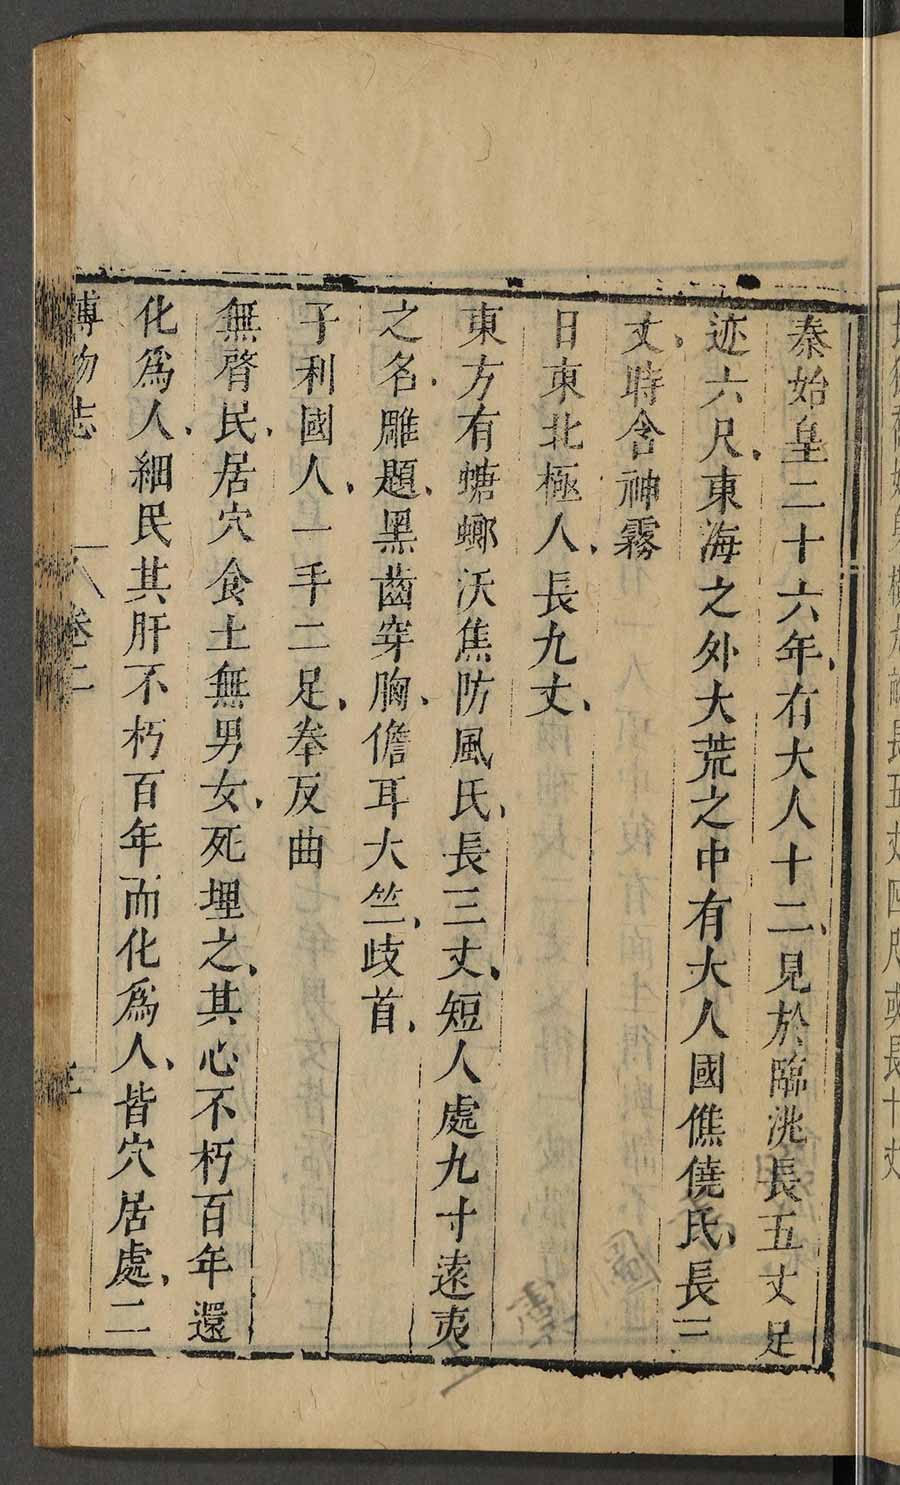 秦始皇二十六年、有大人十二、見於臨洮長五丈足
迹六尺、東海之外大荒之中有大人國僬僥氏、長三
丈、時含神霧
日東北極人、長九丈、
東方有螗螂沃焦防風氏、長三丈、短人處九寸遠夷
之名、雕題、黑齒穿胸、儋耳大竺、歧首、
子利國人、一手二足、拳反曲
無膂民、居穴食土無男女、死埋之、其心不朽百年還
化爲人、細民其肝不朽百年而化爲人、皆穴居處、二
博物志 卷二 三